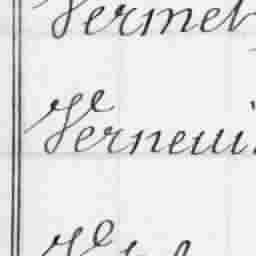 Vermet
Verneui